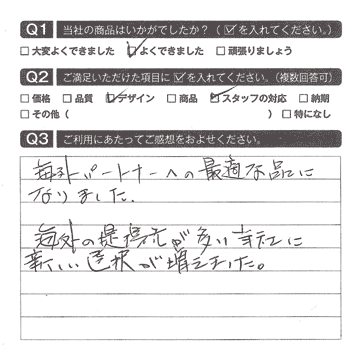 Q1 当社の商品はいかがでしたか?(☑を入れてください。)
□大変よくできました ☑よくできました □頑張りましょう
Q2 ご満足いただけた項目に☑を入れてください。(複数回答可)
□価格 □品質 ☑デザイン □商品 ☑スタッフの対応 □納期
□その他( ) □特になし
Q3 ご利用にあたってご感想をおよせください。
海外パートナーへの最適な品に
なりました.
海外の提携先が多い弊社に
新しい選択が増えました。